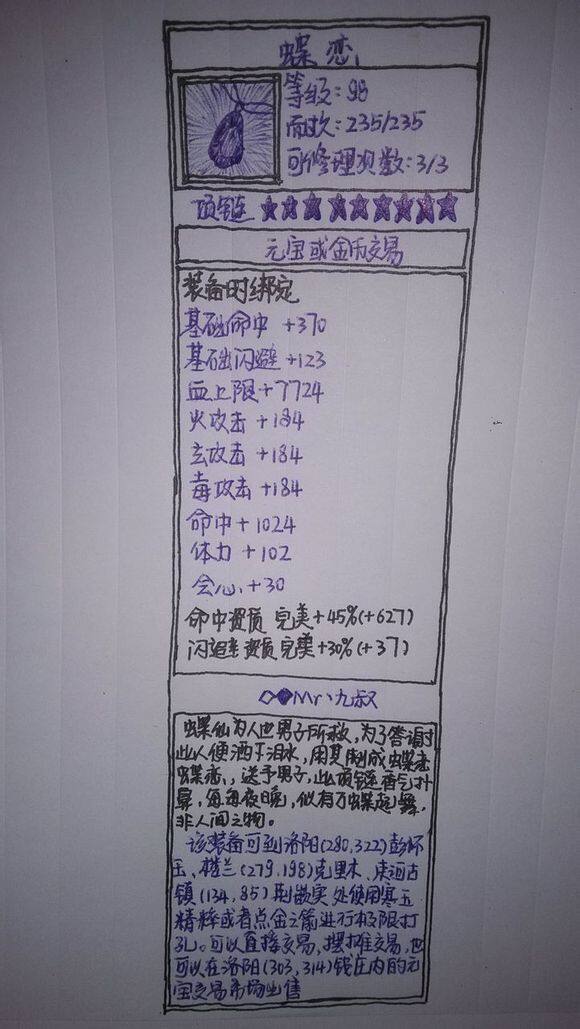 蝶恋
等级：98
耐久：235/235
可修理次数：3/3
项链 ★★★★★★★★★
元宝或金币交易
装备时绑定
基础命中 +370
基础闪避 +123
血上限+7724
火攻击 +184
玄攻击 +184
毒攻击 +184
命中 +1024
体力 +102
会心 +30
命中资质 完美+45%(+627)
闪避资质 完美+30%(+37)
◇◆Mr丶九叔
蝶仙为人世男子所救，为了答谢
此人便洒下泪水，用其制成蝶恋
送予男子，此项链香气扑
鼻，每每夜晚，似有万蝶起舞，
非人间之物。
该装备可到洛阳(280,322)彭怀
玉、楼兰(279,198)克里木、束河古
镇(134,85)荆嵌实处使用寒玉
精粹或者点金之箭进行极限打
孔。可以直接交易，摆摊交易，也
可以在洛阳(303,314)钱庄内的元
宝交易市场出售